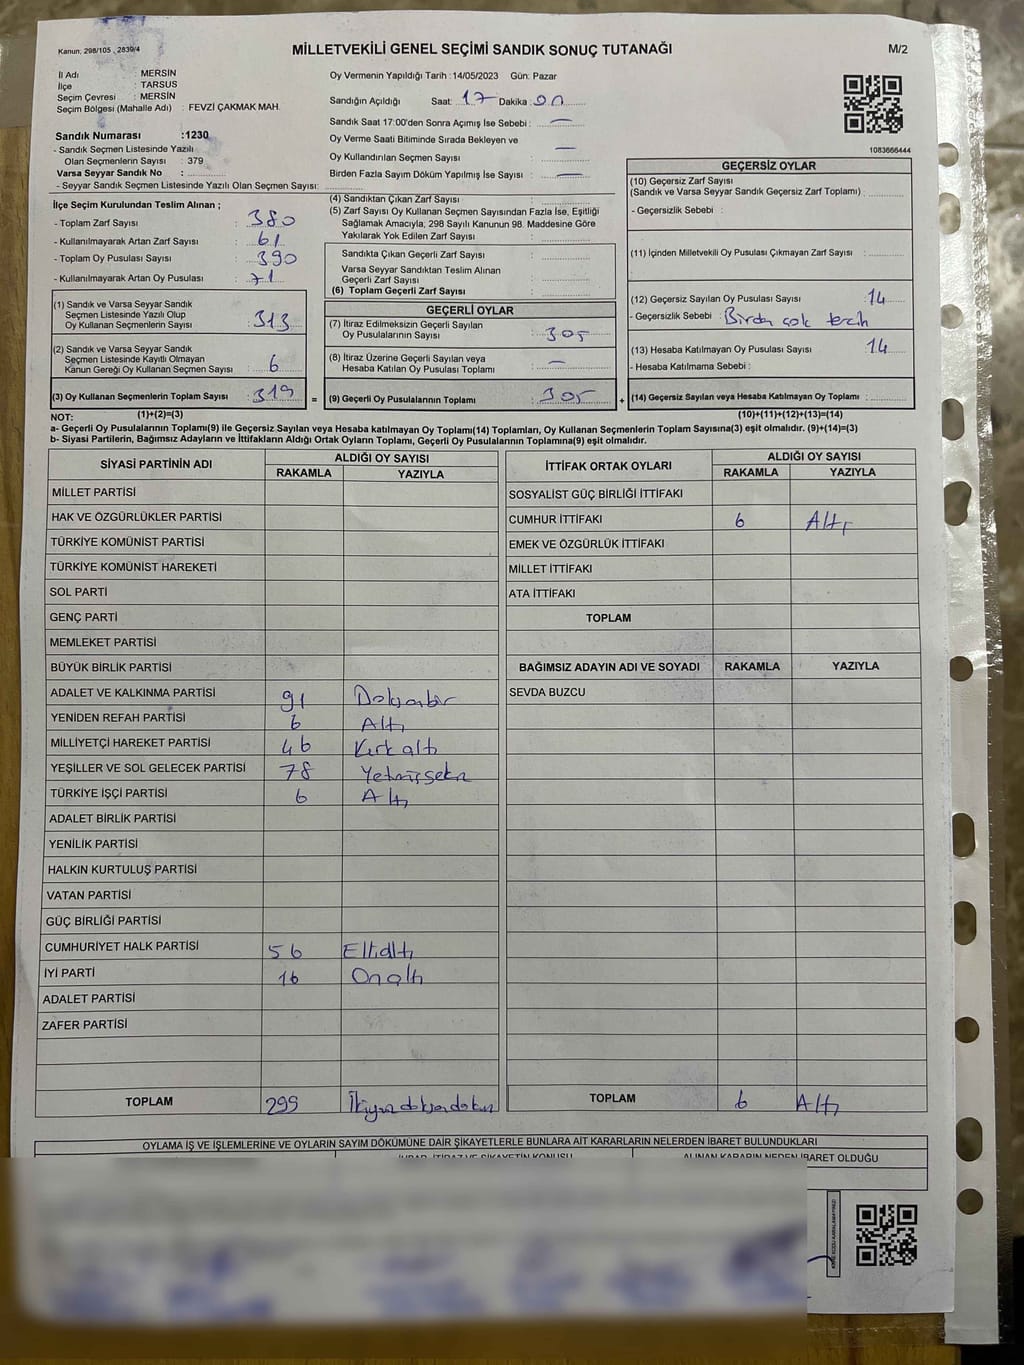 Kanun; 298/105 , 2839/4
MİLLETVEKİLİ GENEL SEÇİMİ SANDIK SONUÇ TUTANAĞI
M/2
İl Adı : MERSİN
İlçe : TARSUS
Seçim Çevresi : MERSİN
Seçim Bölgesi (Mahalle Adı) : FEVZİ ÇAKMAK MAH.
Sandık Numarası :1230
- Sandık Seçmen Listesinde Yazılı
Olan Seçmenlerin Sayısı : 379
Varsa Seyyar Sandık No :
- Seyyar Sandık Seçmen Listesinde Yazılı Olan Seçmen Sayısı:
Oy Vermenin Yapıldığı Tarih :14/05/2023 Gün: Pazar
Sandığın Açıldığı Saat: 17 Dakika: 00
Sandık Saat 17:00'den Sonra Açımış İse Sebebi : —
Oy Verme Saati Bitiminde Sırada Bekleyen ve
Oy Kullandırılan Seçmen Sayısı —
Birden Fazla Sayım Döküm Yapılmış İse Sayısı : —
1083666444
İlçe Seçim Kurulundan Teslim Alınan ;
- Toplam Zarf Sayısı : 380
- Kullanılmayarak Artan Zarf Sayısı : 61
- Toplam Oy Pusulası Sayısı : 390
- Kullanılmayarak Artan Oy Pusulası : 71
(1) Sandık ve Varsa Seyyar Sandık
Seçmen Listesinde Yazılı Olup
Oy Kullanan Seçmenlerin Sayısı : 313
(2) Sandık ve Varsa Seyyar Sandık
Seçmen Listesinde Kayıtlı Olmayan
Kanun Gereği Oy Kullanan Seçmen Sayısı : 6
(3) Oy Kullanan Seçmenlerin Toplam Sayısı : 319
(1)+(2)=(3)
(4) Sandıktan Çıkan Zarf Sayısı :
(5) Zarf Sayısı Oy Kullanan Seçmen Sayısından Fazla İse, Eşitliği
Sağlamak Amacıyla, 298 Sayılı Kanunun 98. Maddesine Göre
Yakılarak Yok Edilen Zarf Sayısı :
Sandıkta Çıkan Geçerli Zarf Sayısı :
Varsa Seyyar Sandıktan Teslim Alınan
Geçerli Zarf Sayısı :
(6) Toplam Geçerli Zarf Sayısı :
GEÇERLİ OYLAR
(7) İtiraz Edilmeksizin Geçerli Sayılan
Oy Pusulalarının Sayısı : 305
(8) İtiraz Üzerine Geçerli Sayılan veya
Hesaba Katılan Oy Pusulası Toplamı : —
= (9) Geçerli Oy Pusulalarının Toplamı : 305
GEÇERSİZ OYLAR
(10) Geçersiz Zarf Sayısı
(Sandık ve Varsa Seyyar Sandık Geçersiz Zarf Toplamı) :
- Geçersizlik Sebebi :
(11) İçinden Milletvekili Oy Pusulası Çıkmayan Zarf Sayısı :
(12) Geçersiz Sayılan Oy Pusulası Sayısı : 14
- Geçersizlik Sebebi : Birden çok tercih
(13) Hesaba Katılmayan Oy Pusulası Sayısı : 14
- Hesaba Katılmama Sebebi :
+ (14) Geçersiz Sayılan veya Hesaba Katılmayan Oy Toplamı :
(10)+(11)+(12)+(13)=(14)
NOT:
a- Geçerli Oy Pusulasının Toplamı(9) ile Geçersiz Sayılan veya Hesaba katılmayan Oy Toplamı(14) Toplamları, Oy Kullanan Seçmenlerin Toplam Sayısına(3) eşit olmalıdır. (9)+(14)=(3)
b- Siyasi Partilerin, Bağımsız Adayların ve İttifakların Aldığı Ortak Oyların Toplamı, Geçerli Oy Pusulalarının Toplamına(9) eşit olmalıdır.
SİYASİ PARTİNİN ADI ALDIĞI OY SAYISI
RAKAMLA YAZIYLA
MİLLET PARTİSİ
HAK VE ÖZGÜRLÜKLER PARTİSİ
TÜRKİYE KOMÜNİST PARTİSİ
TÜRKİYE KOMÜNİST HAREKETİ
SOL PARTİ
GENÇ PARTİ
MEMLEKET PARTİSİ
BÜYÜK BİRLİK PARTİSİ
ADALET VE KALKINMA PARTİSİ 91 Doksanbir
YENİDEN REFAH PARTİSİ 6 Altı
MİLLİYETÇİ HAREKET PARTİSİ 46 Kırk altı
YEŞİLLER VE SOL GELECEK PARTİSİ 78 Yetmişsekiz
TÜRKİYE İŞÇİ PARTİSİ 6 Altı
ADALET BİRLİK PARTİSİ
YENİLİK PARTİSİ
HALKIN KURTULUŞ PARTİSİ
VATAN PARTİSİ
GÜÇ BİRLİĞİ PARTİSİ
CUMHURİYET HALK PARTİSİ 56 Ellialtı
İYİ PARTİ 16 Onaltı
ADALET PARTİSİ
ZAFER PARTİSİ
TOPLAM 299 İkiyüzdoksandokuz
İTTİFAK ORTAK OYLARI ALDIĞI OY SAYISI
RAKAMLA YAZIYLA
SOSYALİST GÜÇ BİRLİĞİ İTTİFAKI
CUMHUR İTTİFAKI 6 Altı
EMEK VE ÖZGÜRLÜK İTTİFAKI
MİLLET İTTİFAKI
ATA İTTİFAKI
TOPLAM
BAĞIMSIZ ADAYIN ADI VE SOYADI RAKAMLA YAZIYLA
SEVDA BUZCU
TOPLAM 6 Altı
OYLAMA İŞ VE İŞLEMLERİNE VE OYLARIN SAYIM DÖKÜMÜNE DAİR ŞİKAYETLERLE BUNLARA AİT KARARLARIN NELERDEN İBARET BULUNDUKLARI
ALINAN KARARIN NEDEN İBARET OLDUĞU